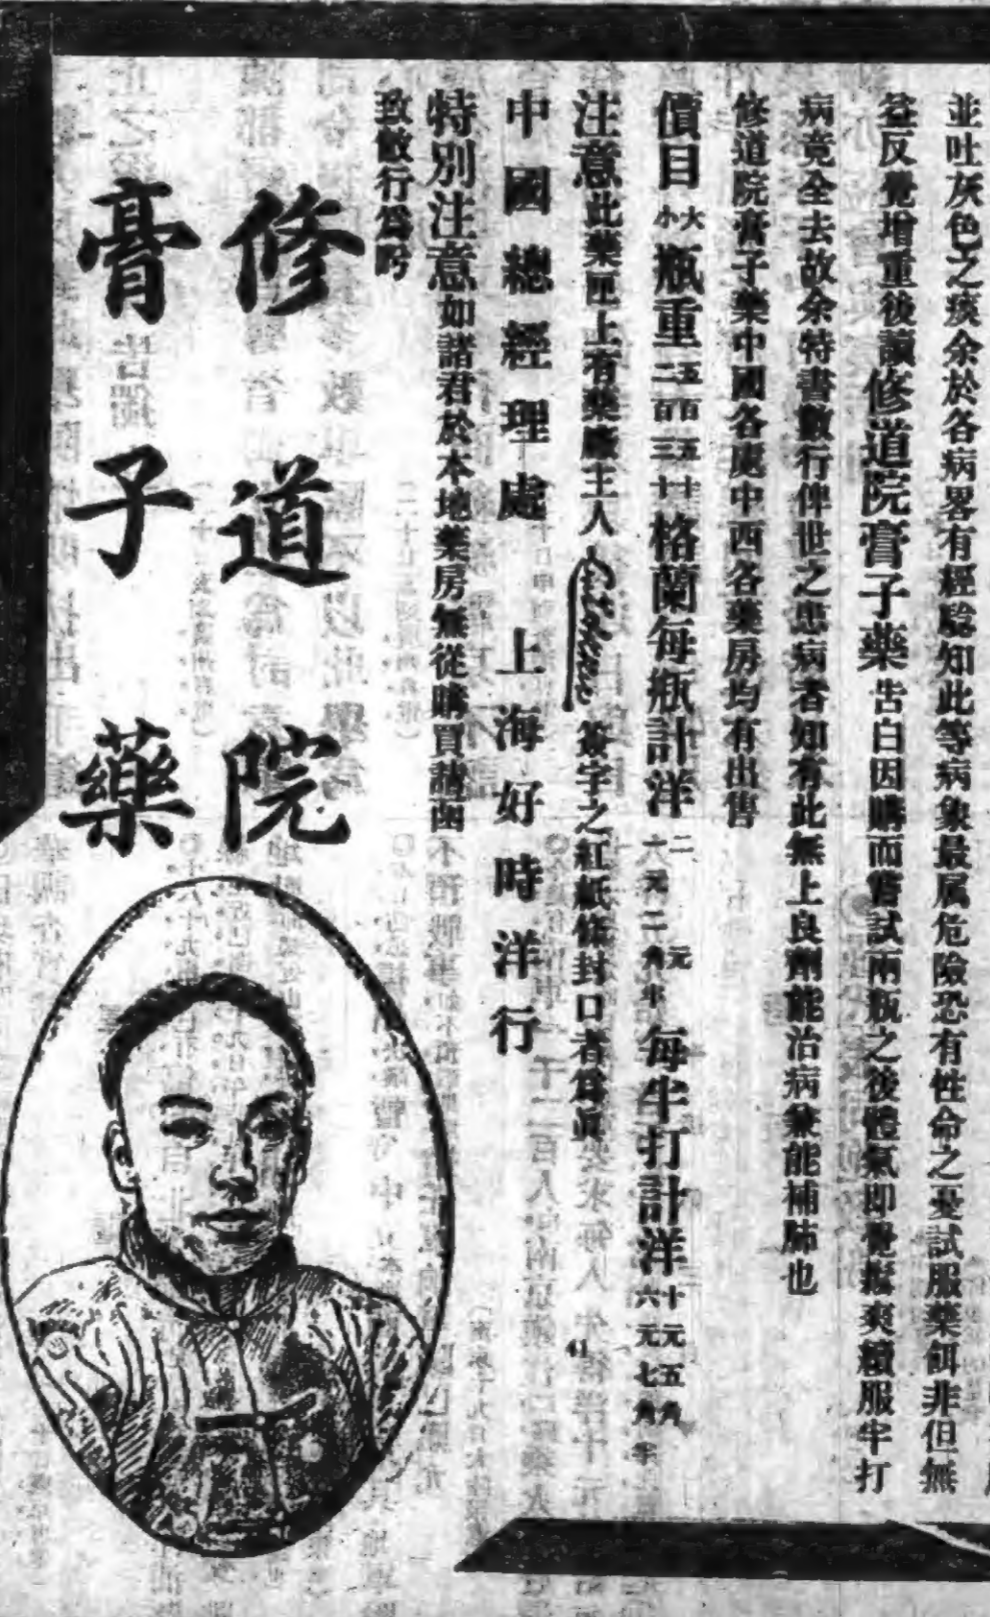 並吐灰色之痰余於各病畧有經驗知此等病象最属危險恐有性命之憂試服藥餌非但無
益反覺增重後讀修道院膏子藥告白因購而嘗試兩瓶之後體氣即覺舒爽續服半打
病竟全去故余特書數行俾世之患病者知有此無上良劑能治病兼能補肺也
修道院膏子藥中國各處中西各藥房均有出售
價目大小瓶重五百五十二百三十格蘭每瓶計洋二元一元二角半每半打計洋十元五角六元七角半
注意此藥匣上有藥廠主人簽字之紅紙條封口者爲眞
中國總經理處 上海好時洋行
特別注意如諸君於本地藥房無從購買請函
致敝行爲盼
修道院
膏子藥
41